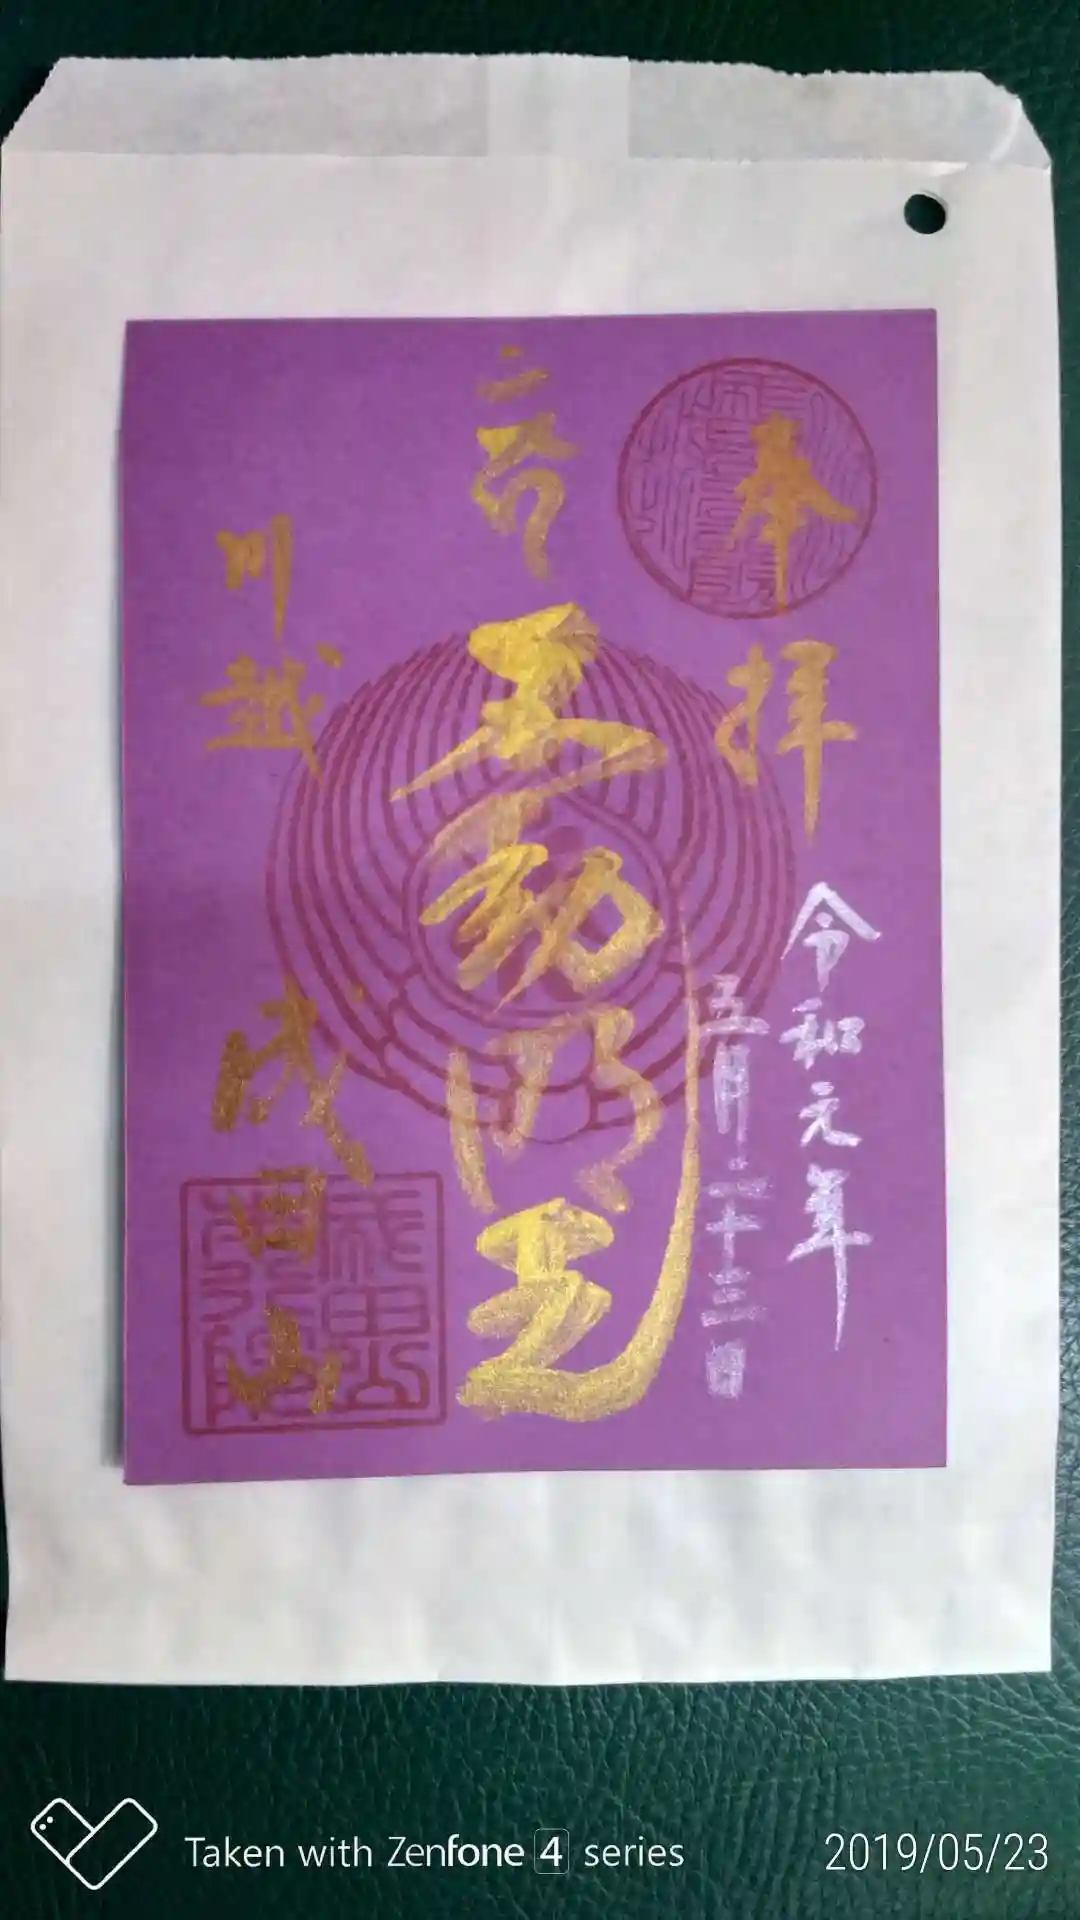 奉拝
令和元年
五月二十三日
動明王
川越 成田山
成田山
本行院
Taken with Zenfone 4 series
2019/05/23